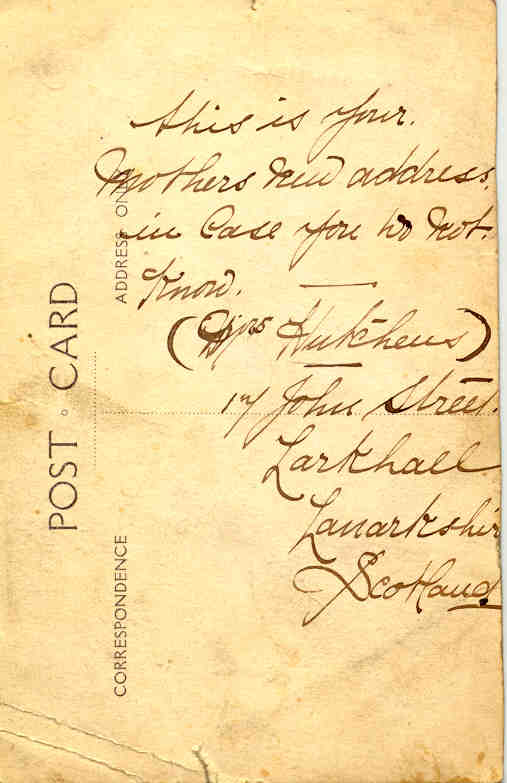 this is your.
Mothers new address.
in Case you do not.
Know. —
(Mrs Hutchens)
17 John Street.
Larkhall
Lanarkshir
Scotland
POST CARD
ADDRESS ON
CORRESPONDENCE